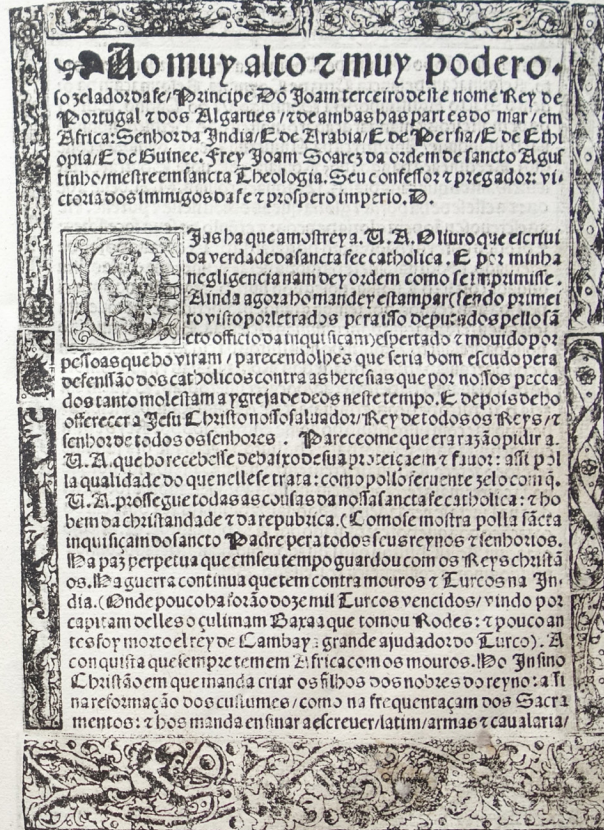 Ao muy alto ⁊ muy podero
so zelador da fe/ Principe Dõ Joam terceiro deste nome Rey de
Portugal ⁊ dos Algarues/ ⁊ de ambas has partes do mar/ em
Africa: Senhor da India/ E de Arabia/ E de Persia/ E de Ethi
opia/ E de Guinee. Frey Joam Soarez da ordem de sancto Agus
tinho/ mestre em sancta Theologia. Seu confessor ⁊ pregador: vi-
ctoria dos immigos da fe ⁊ prospero imperio. D.
Dias ha que amostrey a. U. A. O liuro que escriui
da verdade da sancta fee catholica. E por minha
negligencia nam dey ordem como se imprimisse.
Ainda agora ho mandey estampar (sendo primei
ro visto por letrados pera isso deputados pello sã
cto officio da inquisiçam) espertado ⁊ mouido por
pessoas que ho viram / parecendolhes que seria bom escudo pera
defensão dos catholicos contra as heresias que por nossos pecca
dos tanto molestam a ygreja de deos neste tempo. E depois de ho
offerecer a Jesu Christo nosso saluador/ Rey de todos os Reys/ ⁊
senhor de todos os senhores . Pareceome que era razão pidir a.
U. A. que ho recebesse debaixo de sua proteiçaem ⁊ fauor: assi pol
la qualidade do que nelle se trata: como pollo feruente zelo com q̃.
U. A. prossegue todas as cousas da nossa sancta fe catholica: ⁊ ho
bem da christandade ⁊ da republica. (Como se mostra polla sãcta
inquisiçam do sancto Padre pera todos seus reynos ⁊ senhorios.
Na paz perpetua que em seu tempo guardou com os Reys christã
os. Na guerra continua que tem contra mouros ⁊ Turcos na In-
dia. (Onde pouco ha forão doze mil Turcos vencidos/ vindo por
capitam delles o çulimam Baxaa que tomou Rodes: ⁊ pouco an
tes foy morto el rey de Cambaya: grande ajudador do Turco). A
conquista que sempre tem em Africa com os mouros. No Insino
Christão em que manda criar os filhos dos nobres do reyno: assi
na reformação dos custumes/ como na frequentaçam dos Sacra
mentos: ⁊ hos manda ensinar a escreuer/ latim/ armas ⁊ caualaria/